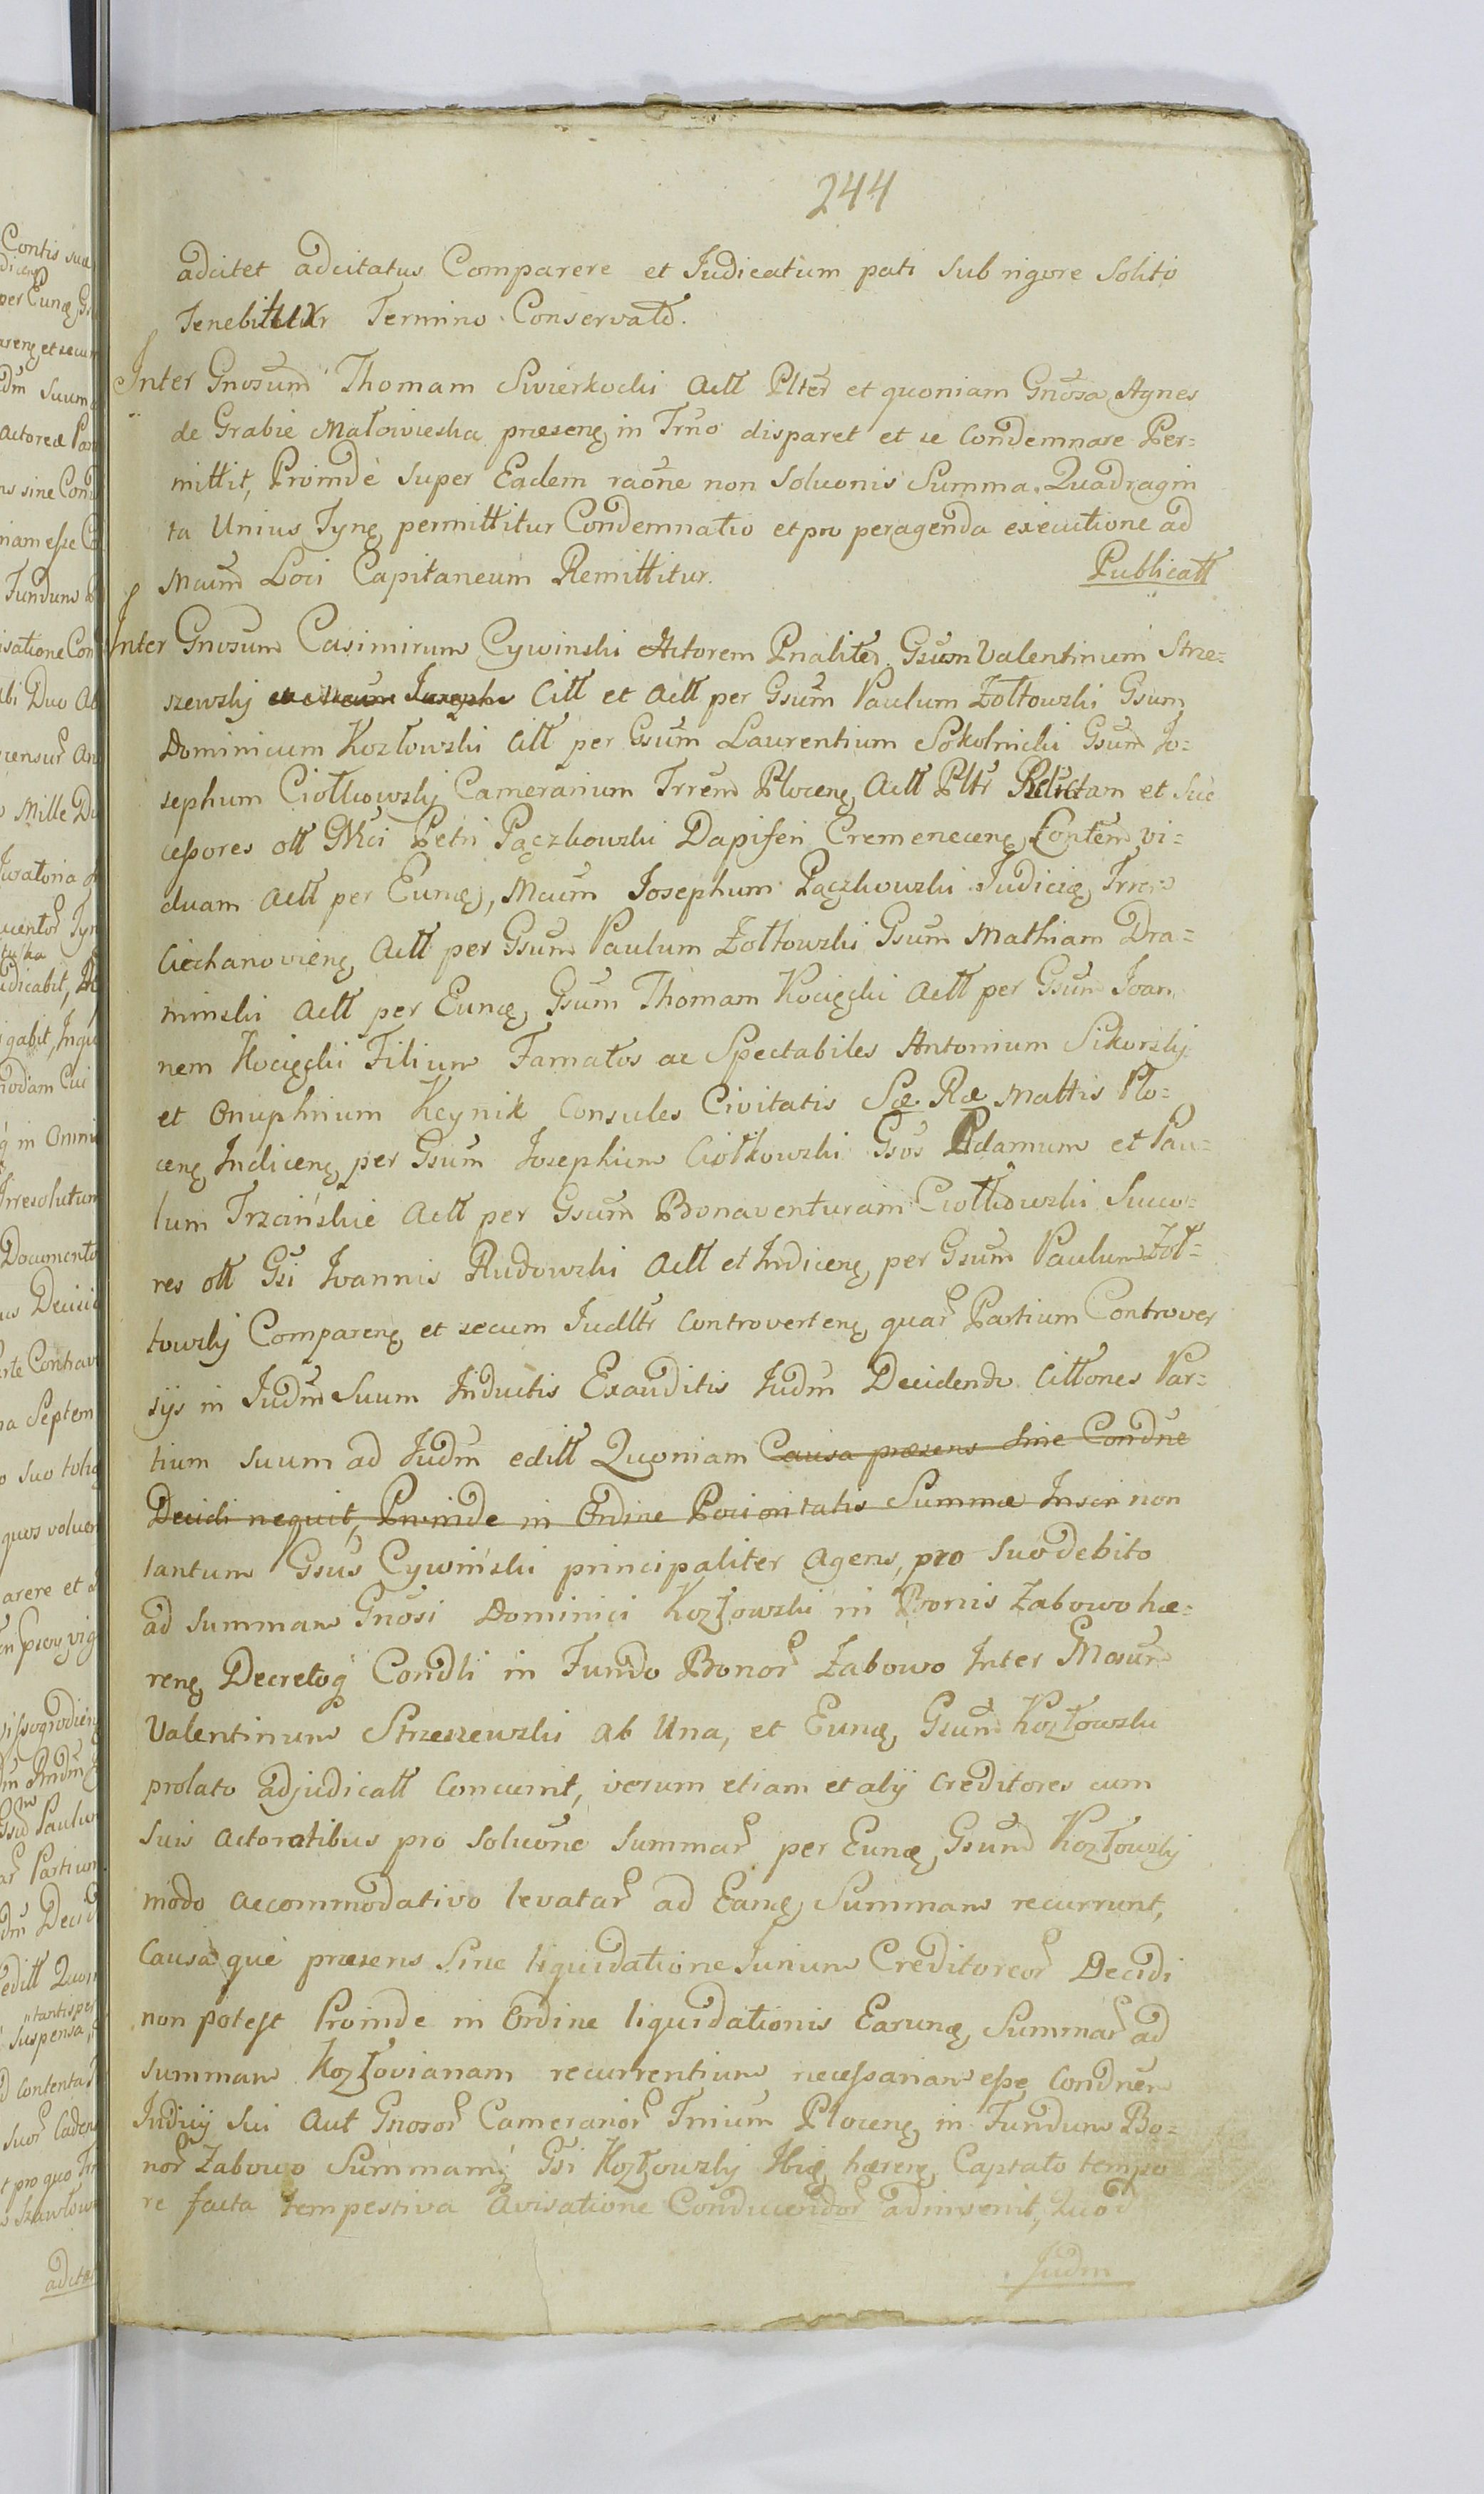 244
adcitet adcitatus Comparere et Judicatum pati sub rigore solito
Tenebitur Termino Conservatd.
Inter Gnosum Thomam Swierkocki Actt Plter et quoniam Gnosa Agnes
de Grabie Małowieska præsenę in Trno disparet et se Condemnare Per=
mittit, Proinde super Eadem raõne non Soluonis Summa Quadragin
ta Unius Tynę permittitur Condemnatio et pro peragenda executione ad
Mcum Loci Capitaneum Remittitur. Publicatt
Inter Gnosum Casimirum Cywinski Actorem Pnaliter Gsum Valentinum Strze=
szewzkj Citt et Actt per Gsum Paulum Zołtowzki Gsum
Dominicum Kozłowzki Citt per Gsum Laurentium Sokolnicki Gsum Jo=
sephum Ciołkowzkj Camerarium Trrem Plocenę Actt Pltr Relictam et Suc
cessores ott Mci Petri Pączkowzki Dapiferi Cremenecenę Contem vi=
duam Actt per Eunę, Mcum Josephum Pączkowzki Judicię Trren
Ciechanovienę Actt per Gsum Paulum Zołtowzki Gsum Mathiam Dra=
minski Actt per Eunę Gsum Thomam Kocięcki Actt per Gsum Joan
nem Kocięcki Filium Famatos ac Spectabiles Antonium Sikorzkj
et Onuphrium Keynik Consules Civitatis Sæ Ræ Mattis Plo=
cenę Indicenę per Gsum Josephum Ciołkowzki Gsos Adamum et Pau=
lum Trzcińskie Actt per Gsum Bonaventuram Ciołkowzki Succo=
res ott Gsi Joannis Rudowzki Actt et Indicenę per Gsum Paulum Zoł=
towzkj Comparenę et secum Judltr Controvertenę quar Partium Controver
sijs in Judm Suum Inductis Exauditis Judm Decidendo Cittones Par=
tium suum ad Judm editt Quoniam Causa præsens sine Condne
Decidi nequit, Proinde in Ordine Prioritatis Summæ Inscr non
tantum Gsus Cywiński principaliter Agens, pro suo debito
ad Summam Gnosi Dominici Kozłowzki in Bonis Zabowo hæ=
renę Decretoq Condli in Fundo Bonor Zabowo Inter Gnosum
Valentinum Strzeszewzki ab Una, et Eunę Gsum Kozłowzki
prolato adjudicatt Concurrit, verum etiam et alij Creditores cum
suis Actoratibus pro Soluone Summar per Eunę Gsum Kozłowzkj
modo accommodativo levatar ad Eamę Summam recurrunt,
Causa que præsens Sine liquidatione Junium Creditoreor Decidi
non potest Proinde in Ordine liquidationis Earunę Summar ad
Summam Kozłovianam recurrentium necessariam esse Condnem
Judicij Sui aut Gnosor Camerarior Trrium Plocenę in Fundum Bo=
nor Zabowo Summamq Gsi Kozłowzkj Ibię hærenę Captato tempo
re facta tempestiva Avisatione Conducendor adinvenit, Quod
Judm